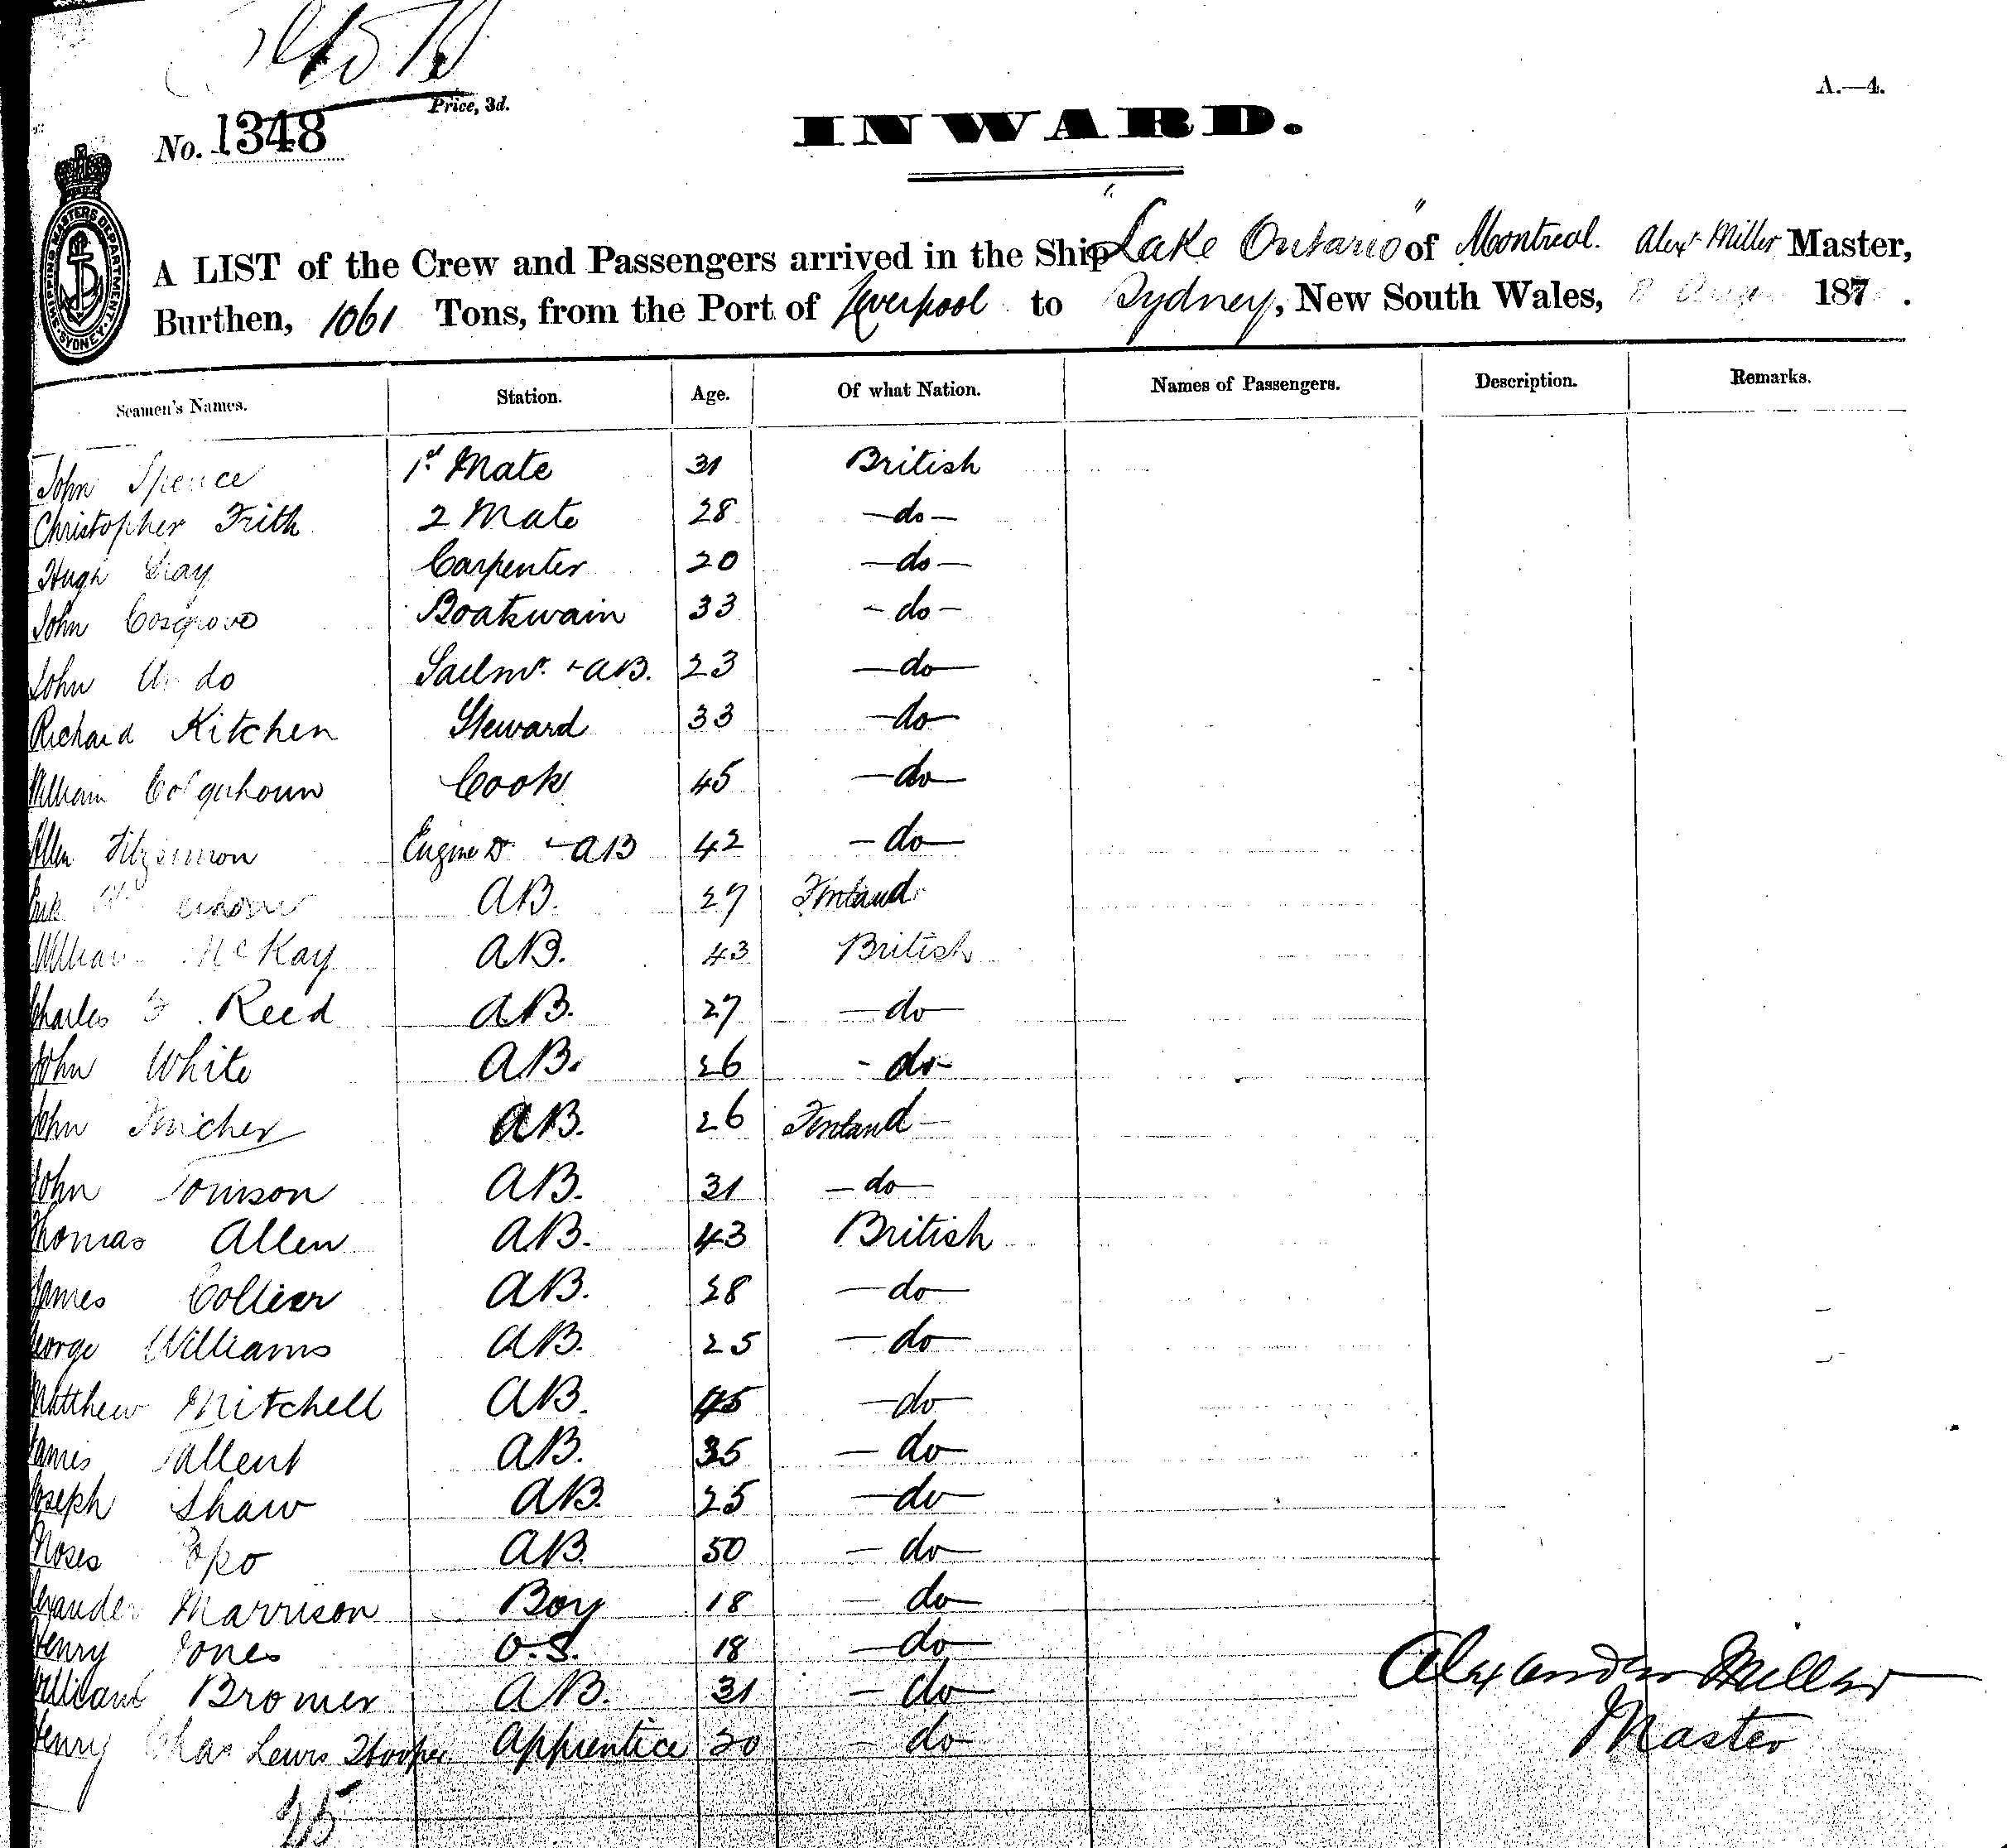 Price, 3d.
A.—4.
No. 1348
INWARD.
SHIPPING MASTERS DEPARTMENT SYDNEY
A LIST of the Crew and Passengers arrived in the Ship "Lake Ontario" of Montreal. Alexr Miller Master,
Burthen, 1061 Tons, from the Port of Liverpool to Sydney, New South Wales, 187 .
Seamen's Names. Station. Age. Of what Nation. Names of Passengers. Description. Remarks.
John Spence 1st Mate 31 British
Christopher Frith 2 Mate 28 —do—
Hugh Gray Carpenter 20 —do—
John Cosgrove Boatswain 33 —do—
John Sailmr. + AB. 23 —do—
Richard Kitchen Steward 33 —do—
William Colquhoun Cook 45 —do—
Allen Fitzsimon + AB 42 —do—
Erik AB. 27 Finland
William McKay AB. 43 British
Charles Reed AB. 27 —do—
John White AB. 26 —do—
John AB. 26 Finland—
John Tomson AB. 31 —do—
Thomas Allen AB. 43 British
James Collier AB. 28 —do—
George Williams AB. 25 —do—
Matthew Mitchell AB. 45 —do—
James AB. 35 —do—
Joseph Shaw AB. 25 —do—
Moses AB. 50 —do—
Alexander Marrison Boy 18 —do—
Henry Jones O.S. 18 —do—
William Bromer AB. 31 —do—
Henry Chas Lewis Hooper Apprentice 20 —do—
Alexander Miller
Master
25